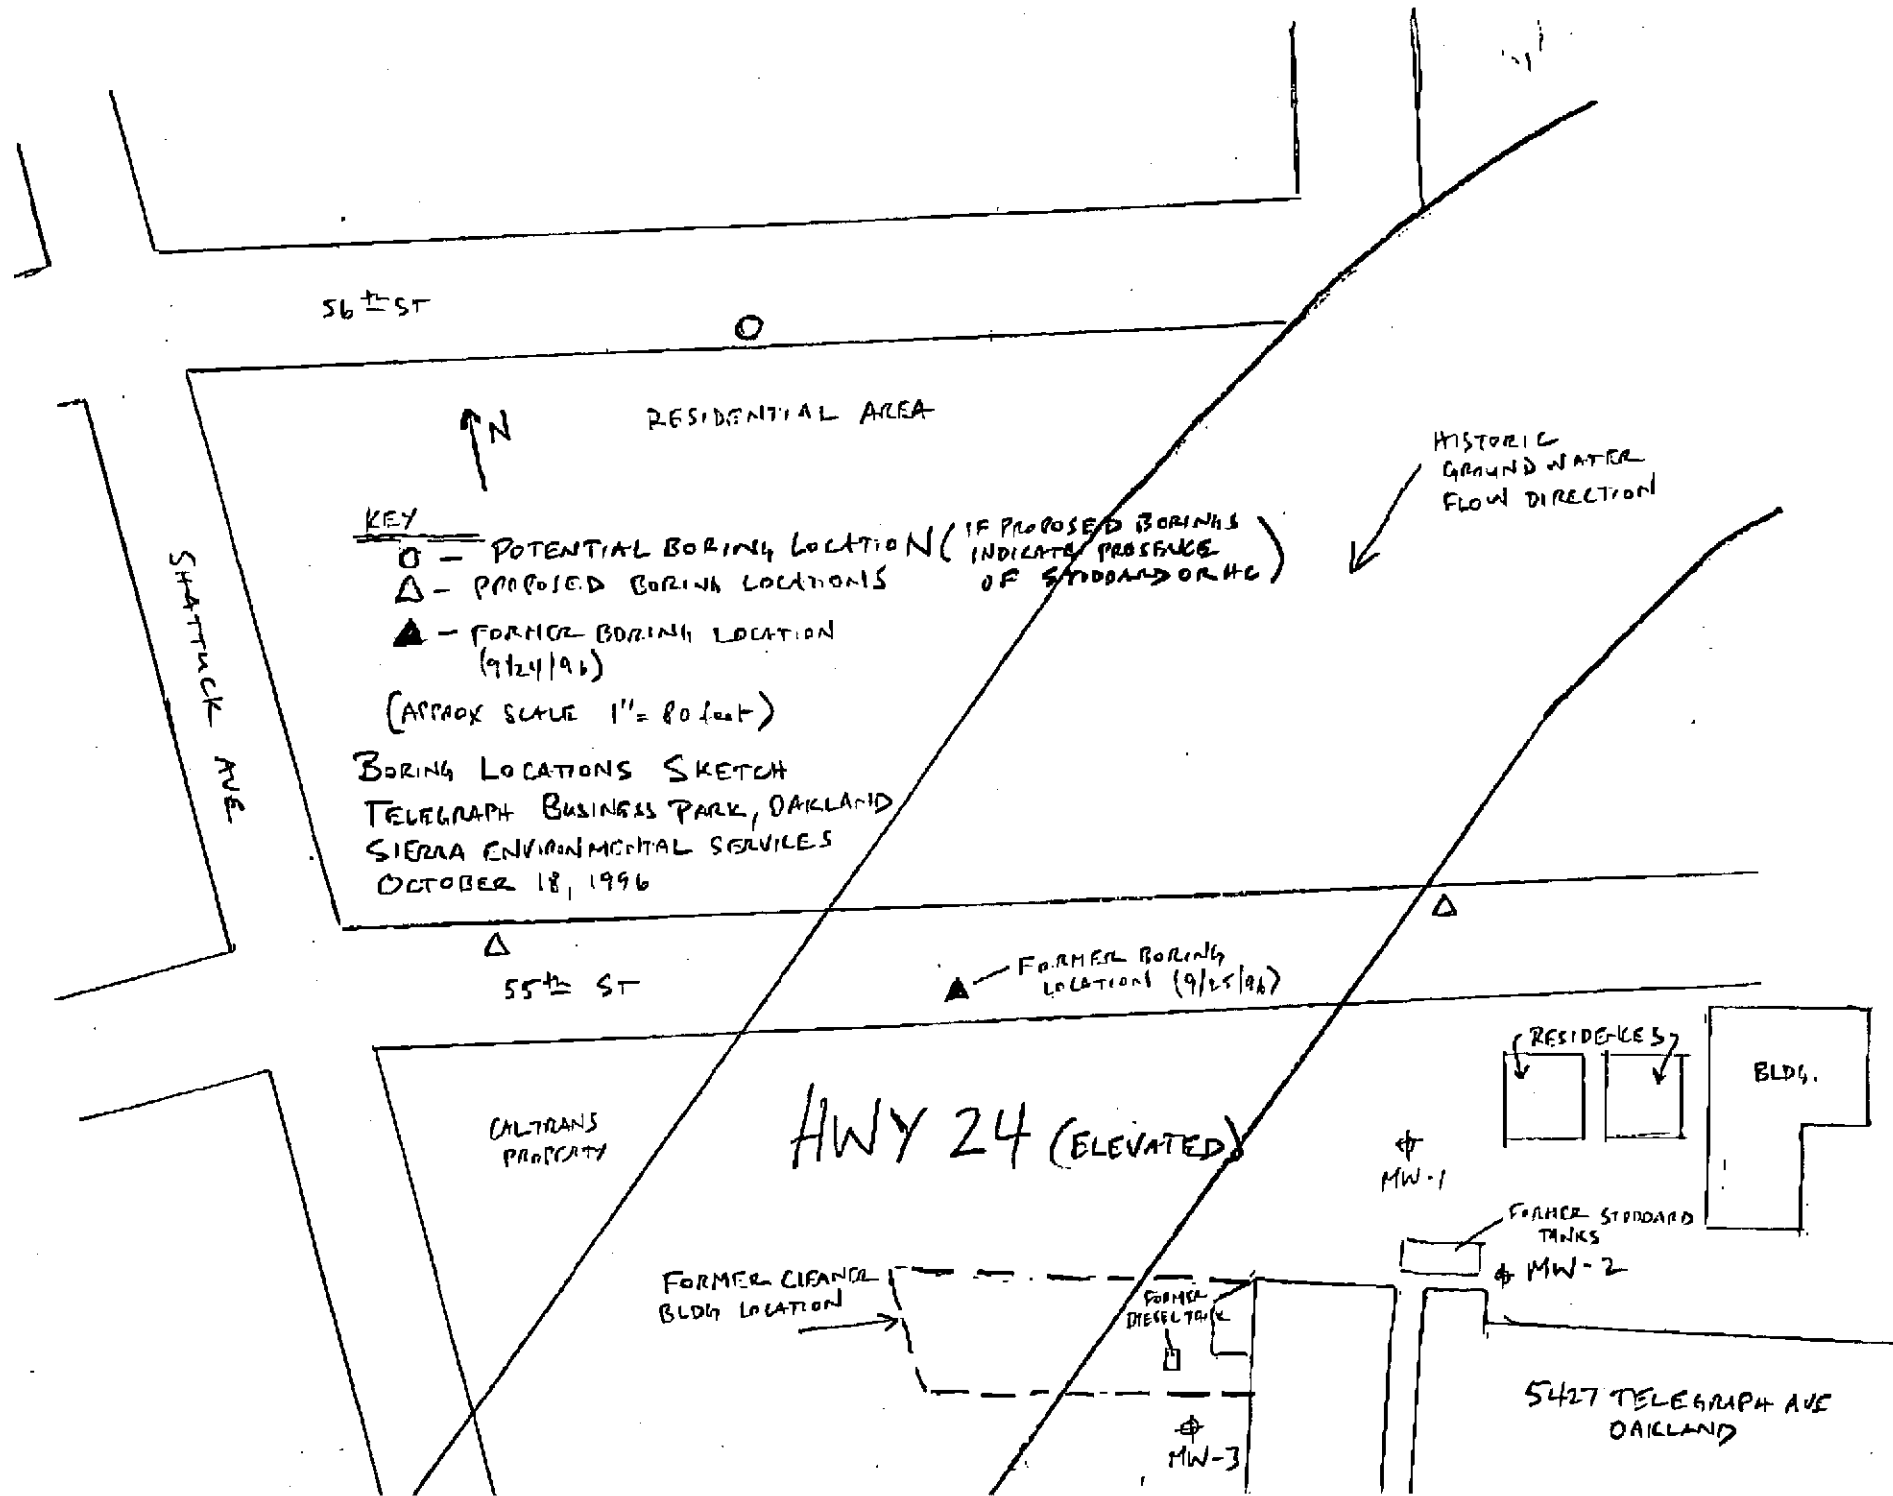 56th ST
RESIDENTIAL AREA
N
HISTORIC
GROUNDWATER
FLOW DIRECTION
KEY
O - POTENTIAL BORING LOCATION (IF PROPOSED BORINGS
INDICATE PRESENCE
OF STODDARD OR HC)
△ - PROPOSED BORING LOCATIONS
▲ - FORMER BORING LOCATION
(9/24/96)
(APPROX SCALE 1"= 80 feet)
BORING LOCATIONS SKETCH
TELEGRAPH BUSINESS PARK, OAKLAND
SIERRA ENVIRONMENTAL SERVICES
OCTOBER 18, 1996
SHATTUCK AVE
55th ST
FORMER BORING
LOCATIONS (9/25/96)
RESIDENCES
BLDG.
CALTRANS
PROPERTY
HWY 24 (ELEVATED)
MW-1
FORMER STODDARD
TANKS
MW-2
FORMER CLEANER
BLDG LOCATION
FORMER
DIESEL TANK
MW-3
5427 TELEGRAPH AVE
OAKLAND